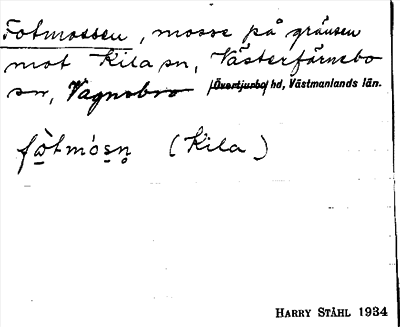 Fotmossen, mosse på gränsen
mot Kila sn, Västerfärnebo
sn, Vagnsbro /Övertjurbo/ hd, Västmanlands län.
fòtmósn (Kila)
HARRY STÅHL 1934